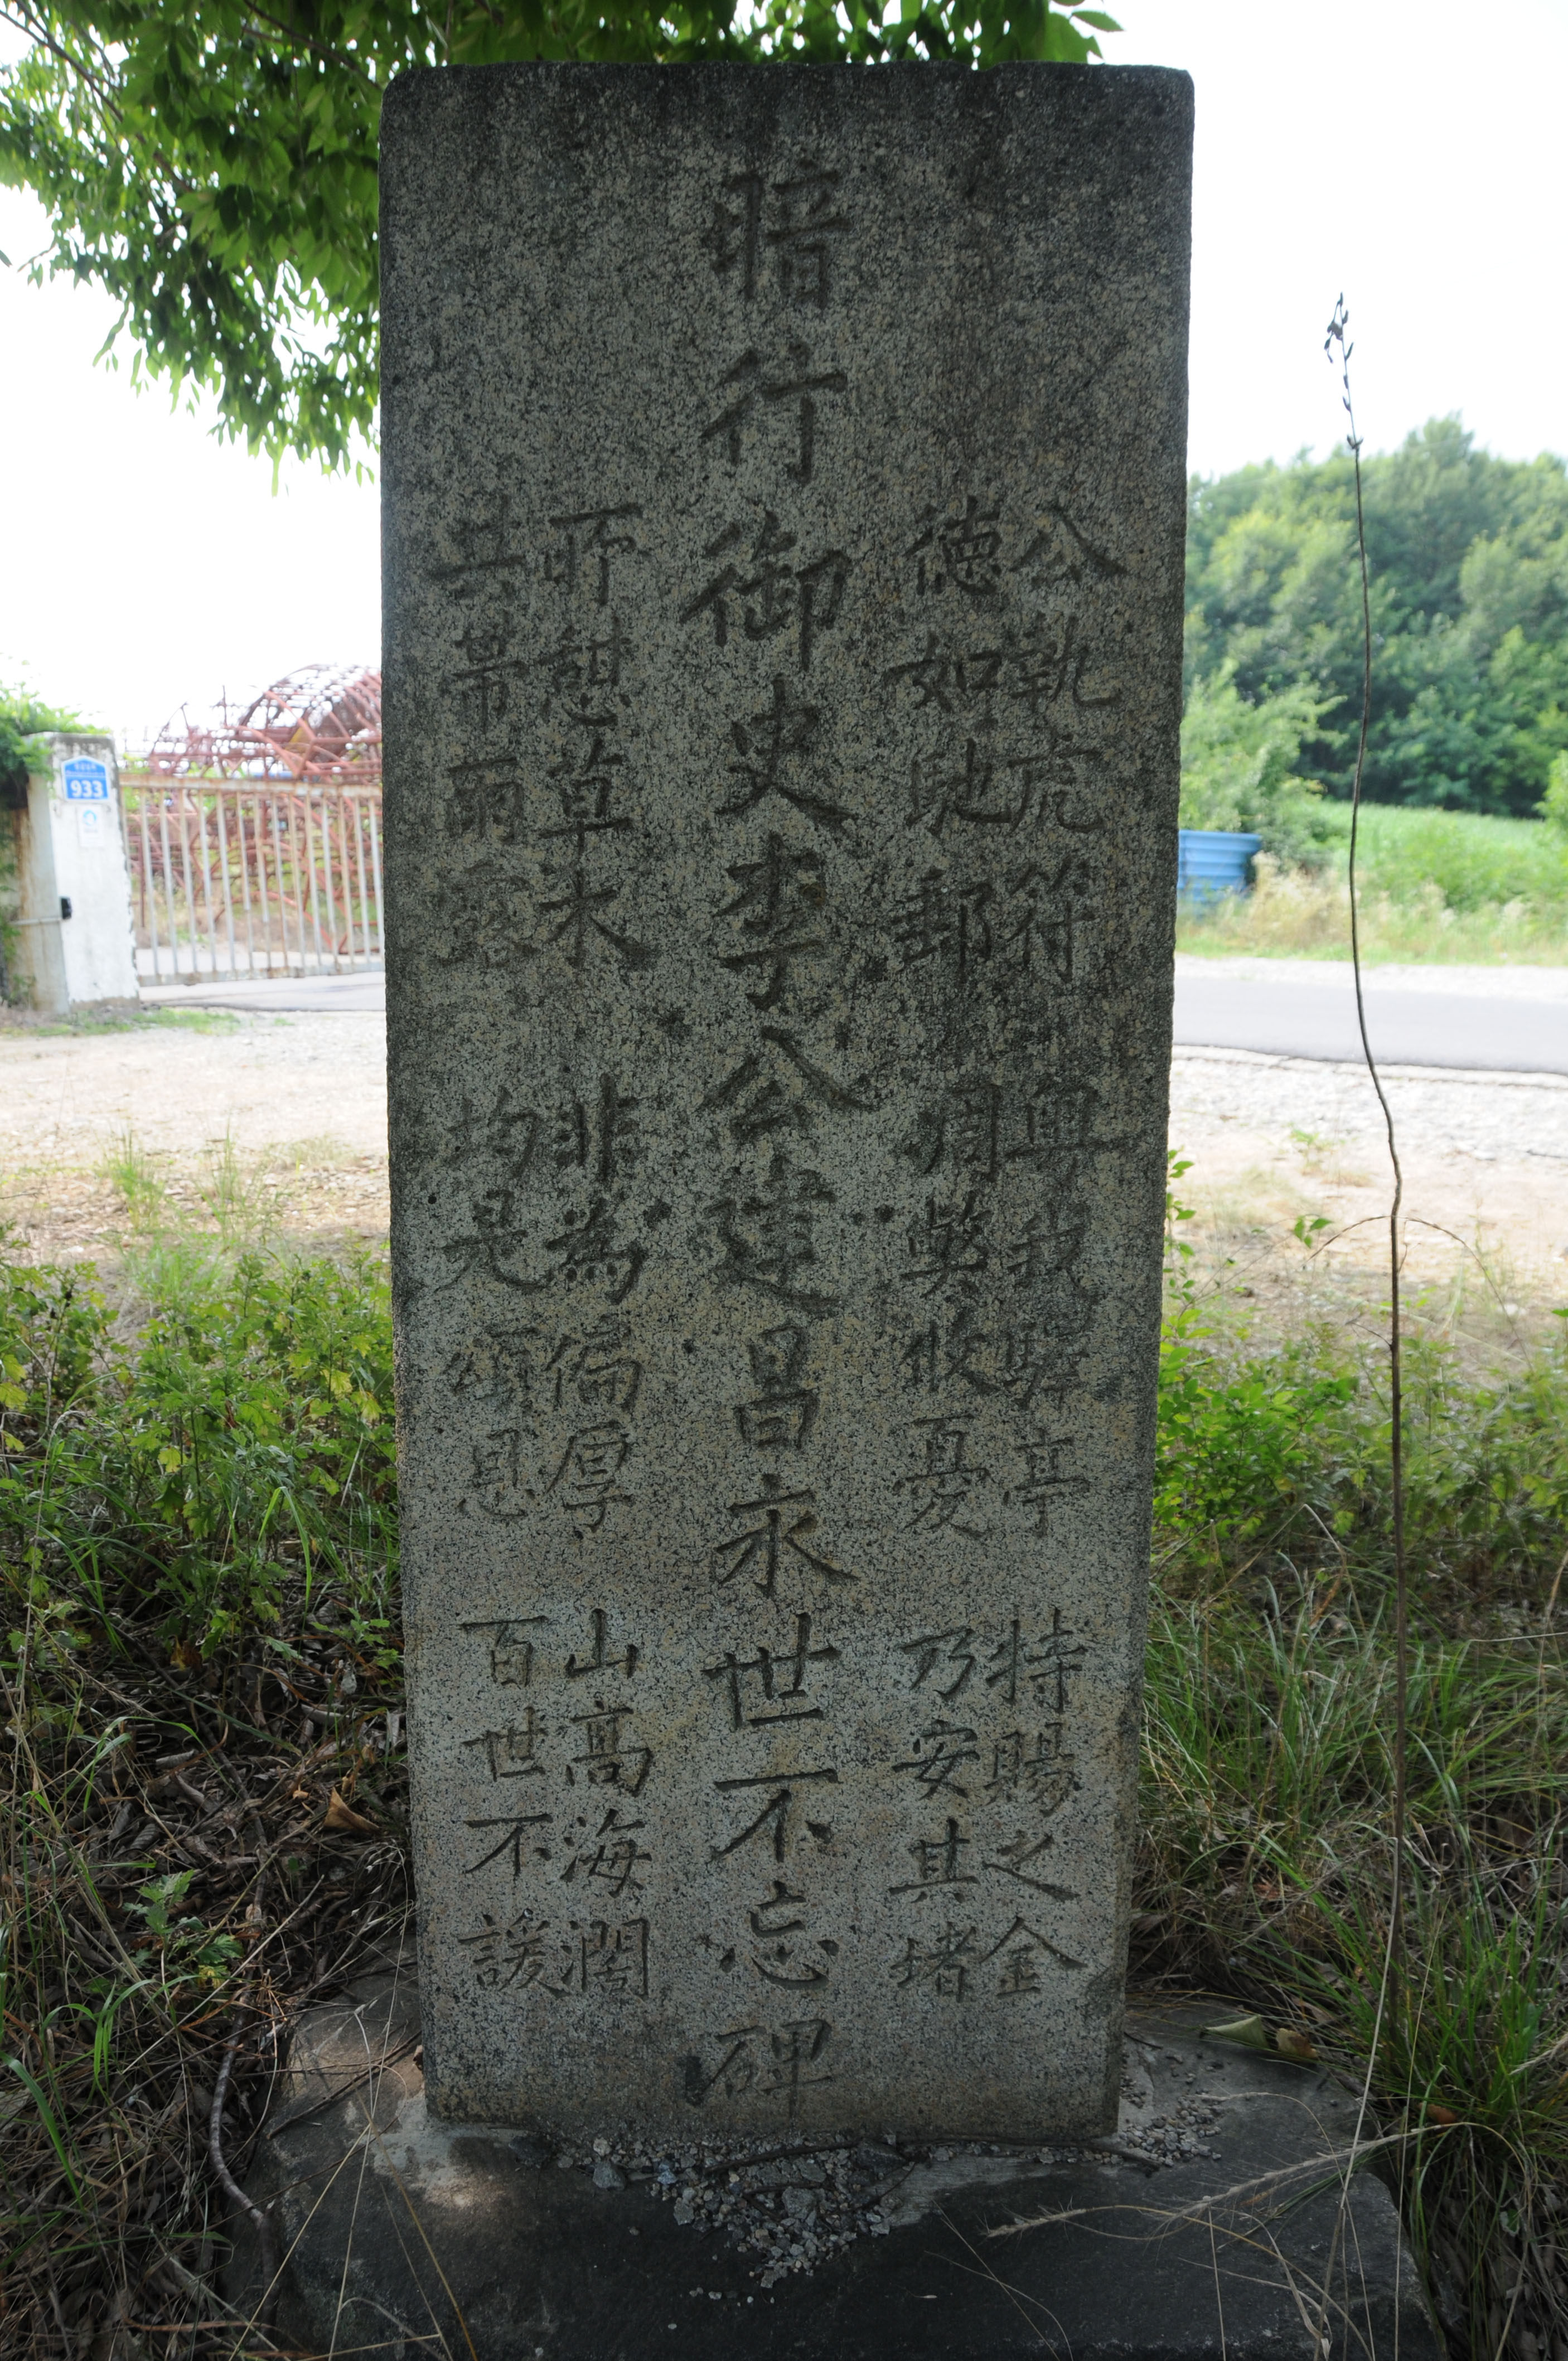 公執虎符 粤我驛亭 特賜之金
德如馳郵 周獘收憂 乃安其堵
暗行御史李公建昌永世不忘碑
所憇草木 非為偏厚 山高海濶
共帶雨露 均是頌恩 百世不諼
933